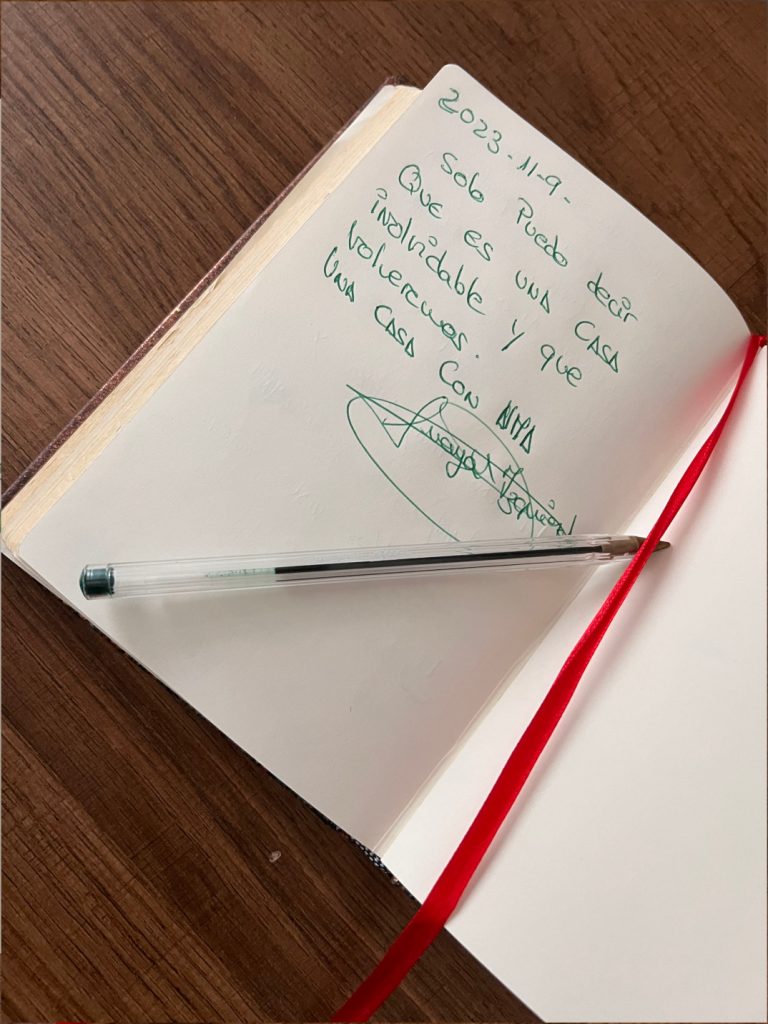 2023-11-9-
Solo Puedo decir
Que es UNA CASA
inolvidable y que
Volveremos.
UNA CASA CON AlMA